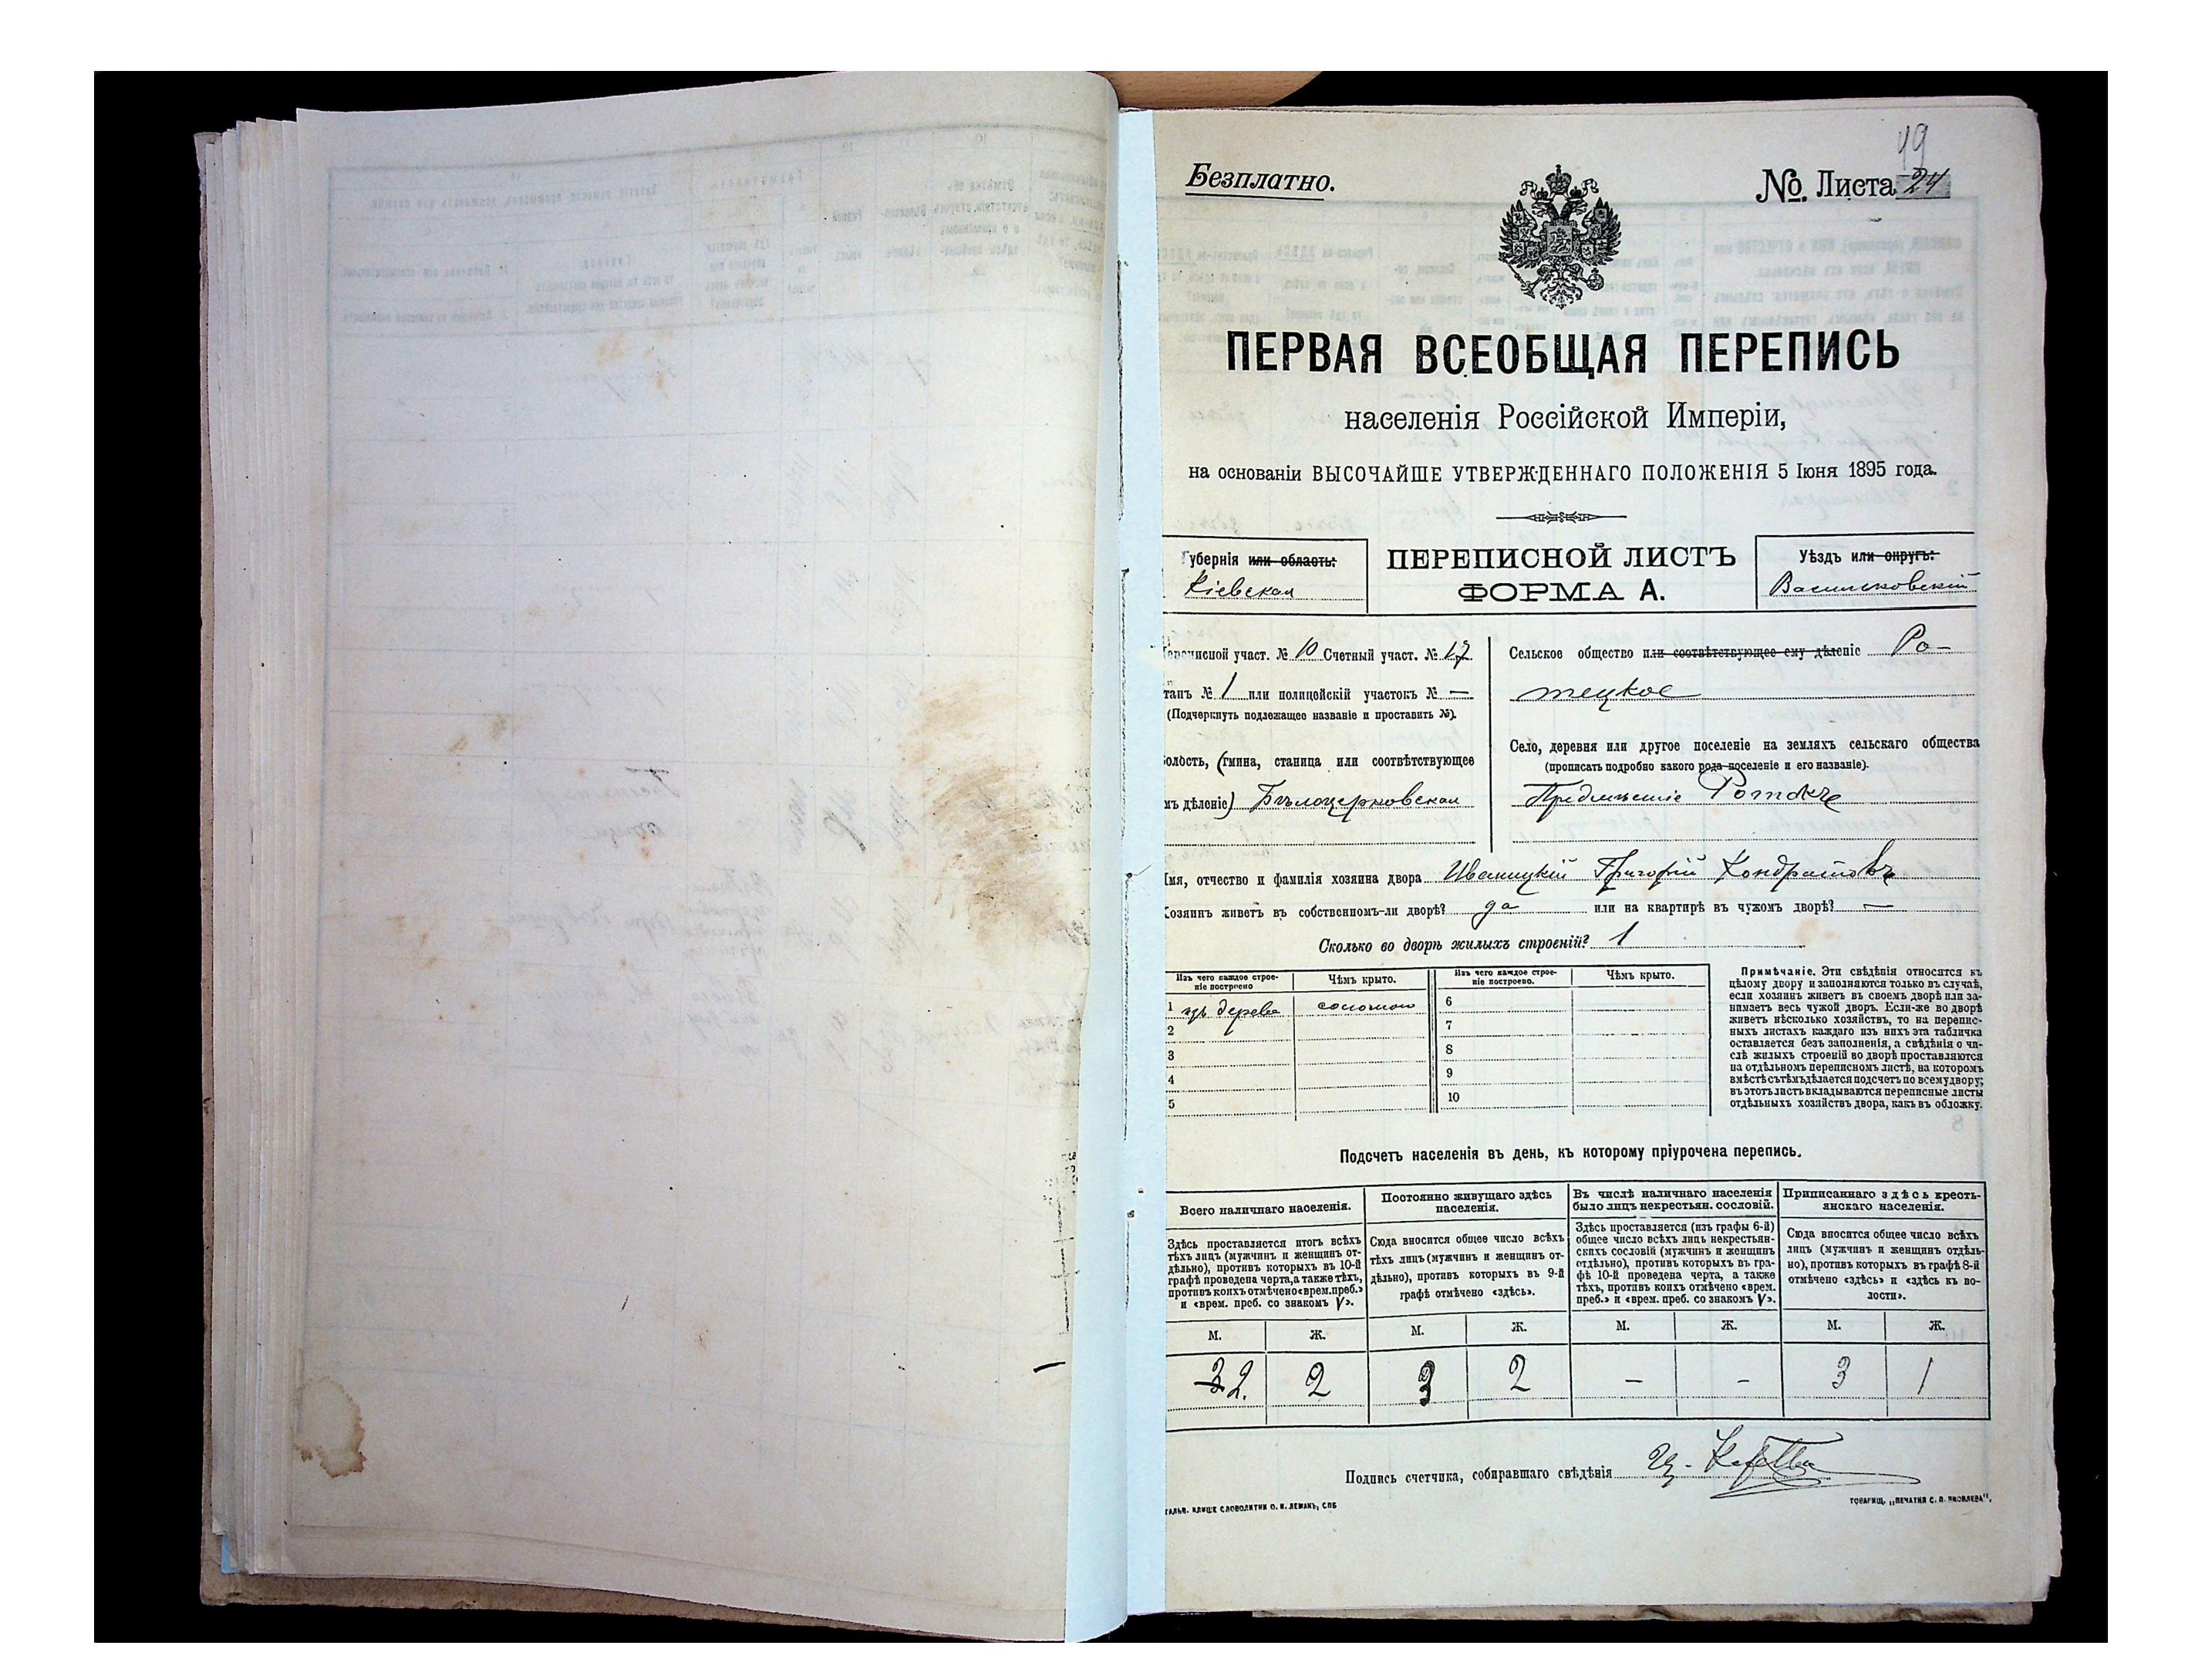 19
Безплатно.
№ Листа 24
ПЕРВАЯ ВСЕОБЩАЯ ПЕРЕПИСЬ
населенія Россійской Имперіи,
на основаніи ВЫСОЧАЙШЕ УТВЕРЖДЕННАГО ПОЛОЖЕНІЯ 5 Іюня 1895 года.
Губернія или область:
Кіевская
ПЕРЕПИСНОЙ ЛИСТЪ
ФОРМА А.
Уѣздъ или округъ:
Васильковскій
Переписной участ. № 10 Счетный участ. № 17
танъ № 1 или полицейскій участокъ № —
(Подчеркнуть подлежащее названіе и проставить №).
олость, (гмина, станица или соотвѣтствующее
мъ дѣленіе) Бѣлоцерковская
Сельское общество или соотвѣтствующее ему дѣленіе Ро-
тецкое
Село, деревня или другое поселеніе на земляхъ сельскаго общества
(прописать подробно какого рода поселеніе и его названіе).
Предмѣстіе Ротокъ
Имя, отчество и фамилія хозяина двора Иваницкій Григорій Кондратовъ
Хозяинъ живетъ въ собственномъ-ли дворѣ? да или на квартирѣ въ чужомъ дворѣ? —
Сколько во дворѣ жилыхъ строеній? 1
Изъ чего каждое строе-
ніе построено
Чѣмъ крыто.
Изъ чего каждое строе-
ніе построено.
Чѣмъ крыто.
1 изъ дерева соломою
2
3
4
5
6
7
8
9
10
Примѣчаніе. Эти свѣдѣнія относятся къ
цѣлому двору и заполняются только въ случаѣ,
если хозяинъ живетъ въ своемъ дворѣ или за-
нимаетъ весь чужой дворъ. Если-же во дворѣ
живетъ нѣсколько хозяйствъ, то на перепис-
ныхъ листахъ каждаго изъ нихъ эта табличка
оставляется безъ заполненія, а свѣдѣнія о чи-
слѣ жилыхъ строеній во дворѣ проставляются
на отдѣльномъ переписномъ листѣ, на которомъ
вмѣстѣ съ тѣмъ дѣлается подсчетъ по всему двору;
въ этотъ листъ вкладываются переписные листы
отдѣльныхъ хозяйствъ двора, какъ въ обложку.
Подсчетъ населенія въ день, къ которому пріурочена перепись.
Всего наличнаго населенія.
Здѣсь проставляется итогъ всѣхъ
тѣхъ лицъ (мужчинъ и женщинъ от-
дѣльно), противъ которыхъ въ 10-й
графѣ проведена черта, а также тѣхъ,
противъ коихъ отмѣчено «врем. преб.»
и «врем. преб. со знакомъ V».
Постоянно живущаго здѣсь
населенія.
Сюда вносится общее число всѣхъ
тѣхъ лицъ (мужчинъ и женщинъ от-
дѣльно), противъ которыхъ въ 9-й
графѣ отмѣчено «здѣсь».
Въ числѣ наличнаго населенія
было лицъ некрестьян. сословій.
Здѣсь проставляется (изъ графы 6-й)
общее число всѣхъ лицъ некрестьян-
скихъ сословій (мужчинъ и женщинъ
отдѣльно), противъ которыхъ въ гра-
фѣ 10-й проведена черта, а также
тѣхъ, противъ коихъ отмѣчено «врем.
преб.» и «врем. преб. со знакомъ V».
Приписаннаго здѣсь кресть-
янскаго населенія.
Сюда вносится общее число всѣхъ
лицъ (мужчинъ и женщинъ отдѣль-
но), противъ которыхъ въ графѣ 8-й
отмѣчено «здѣсь» и «здѣсь къ во-
лости».
М. Ж. М. Ж. М. Ж. М. Ж.
3 2. 2 3 2 - - 3 1
Подпись счетчика, собиравшаго свѣдѣнія
ГАЛЬВ. КЛИШЕ СЛОВОЛИТНИ О. И. ЛЕМАНЪ, СПБ
ТОВАРИЩ. „ПЕЧАТНЯ С. П. ЯКОВЛЕВА".